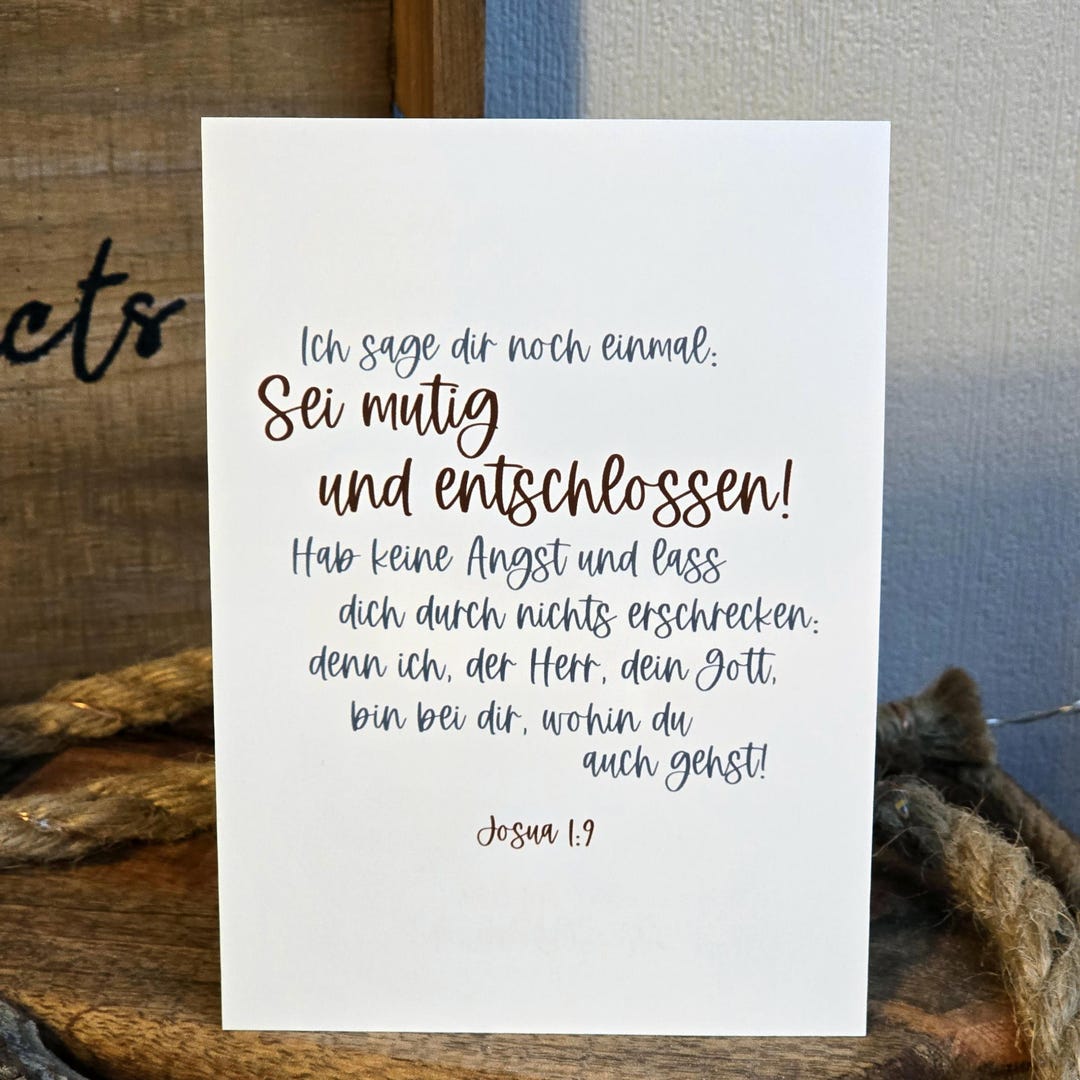 cts
Ich sage dir noch einmal:
Sei mutig
und entschlossen!
Hab keine Angst und lass
dich durch nichts erschrecken;
denn ich, der Herr, dein Gott,
bin bei dir, wohin du
auch gehst!
Josua 1:9